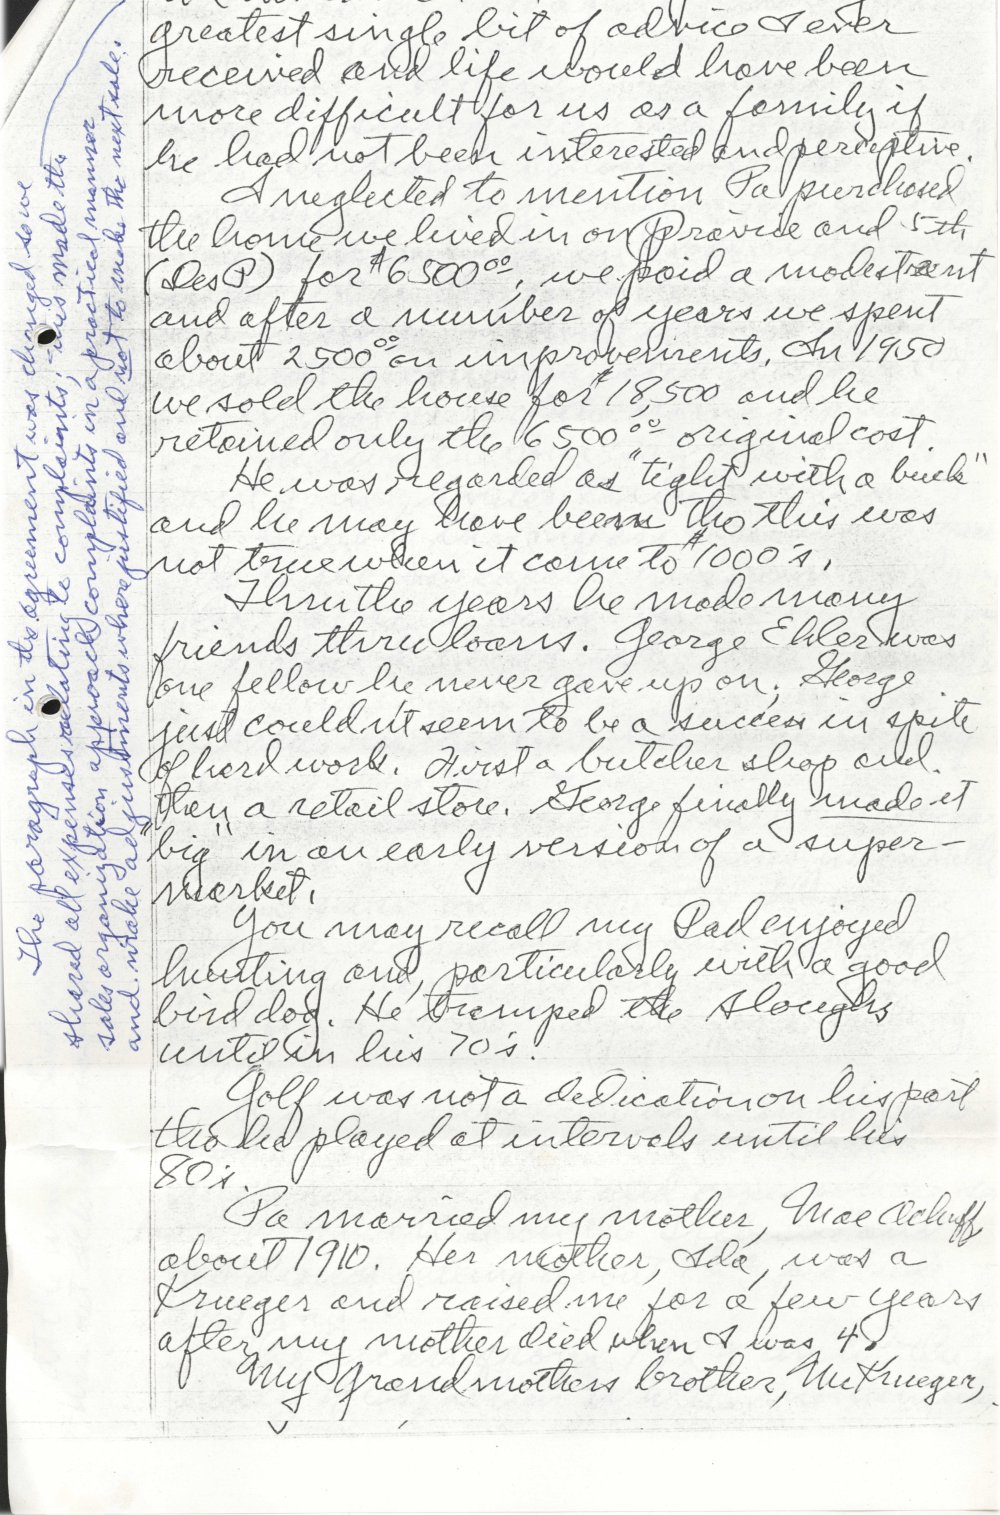 greatest single bit of advice I ever
received and life would have been
more difficult for us as a family if
he had not been interested and perceptive.
I neglected to mention Pa purchased
the home we lived in on Prairie and 5th
(Des P) for $6500⁰⁰, we paid a modest rent
and after a number of years we spent
about 2500⁰⁰ on improvements. In 1950
we sold the house for $18,500 and he
retained only the 6500⁰⁰ original cost.
He was regarded as "tight with a buck"
and he may have been tho this was
not true when it come to $1000's.
Thru the years he made many
friends thru loans. George Ehler was
one fellow he never gave up on. George
just couldn't seem to be a success in spite
of hard work. First a butcher shop and
then a retail store. George finally made it
"big" in an early version of a super-
market.
You may recall my Dad enjoyed
hunting and, particularly with a good
bird dog. He tramped the sloughs
until in his 70's.
Golf was not a dedication on his part
tho he played at intervals until his
80's.
Pa married my mother, Mae Schuff,
about 1910. Her mother, Ida, was a
Krueger and raised me for a few years
after my mother died when I was 4.
My Grandmothers brother, Mr Krueger,
The paragraph in the agreement was changed so we
shared all expenses relating to complaints; - this made the
sales organization approach complaints in a practical manner
and make adjustments where justified and not to make the next sale.